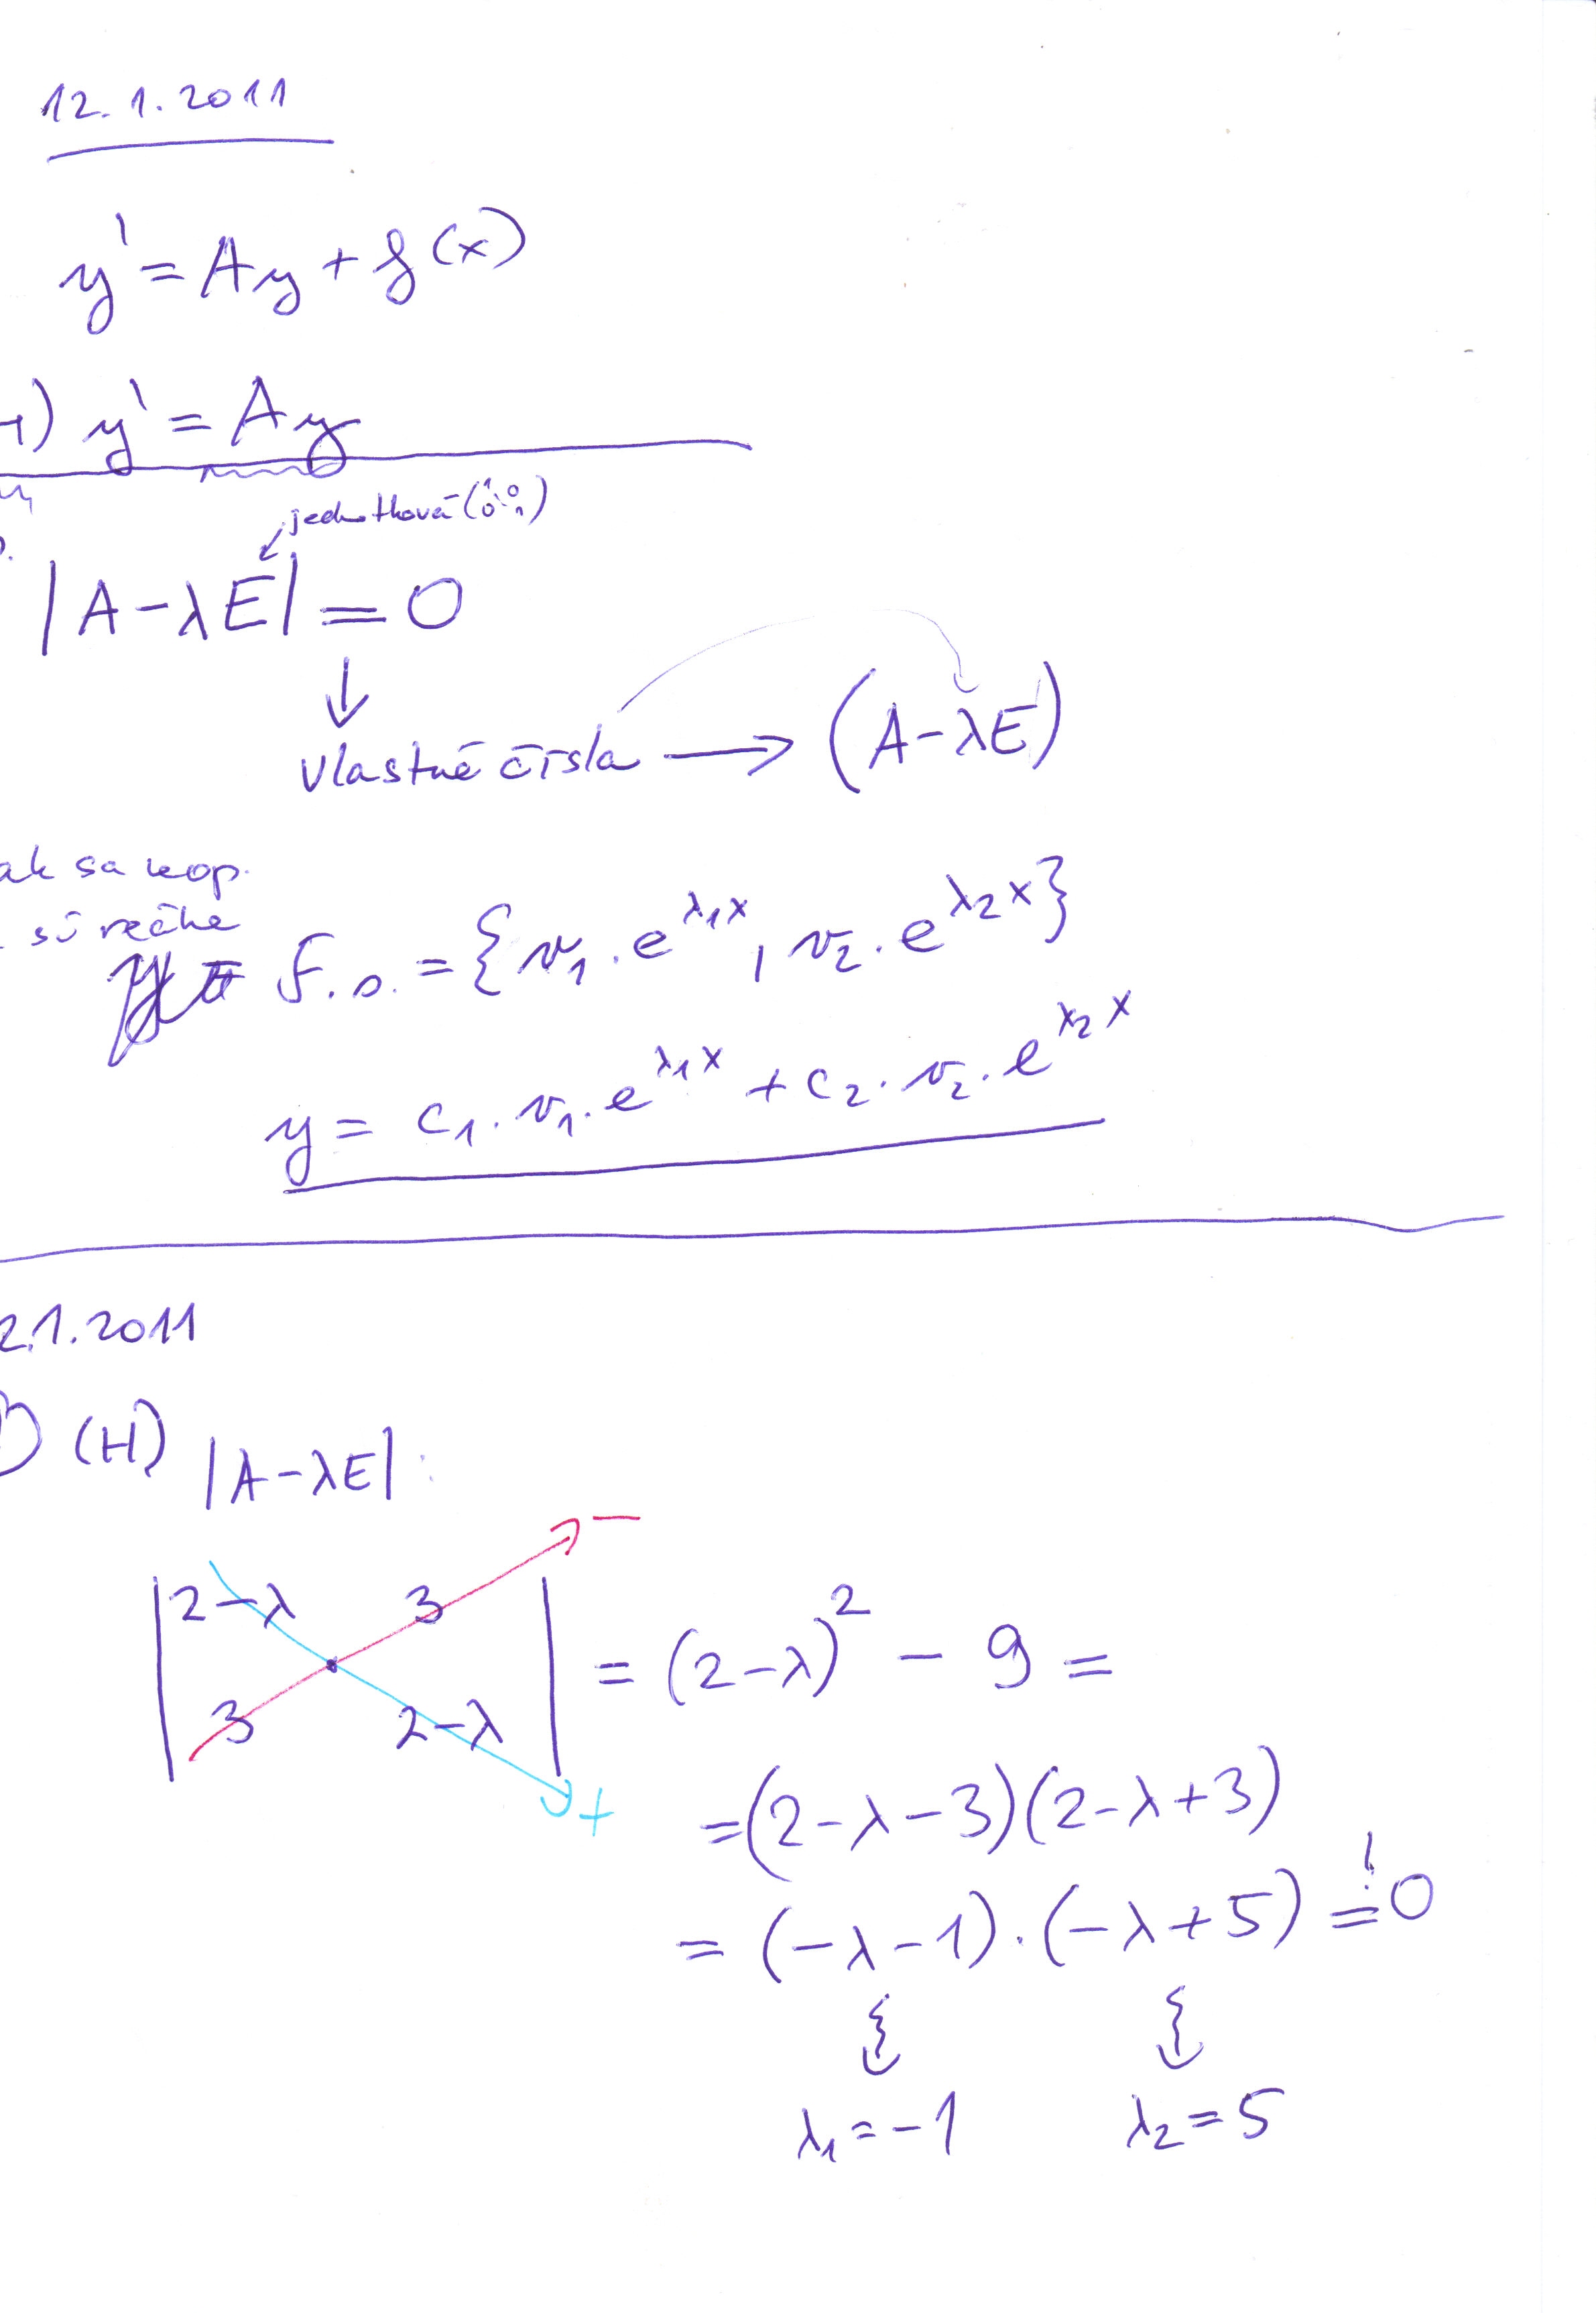 12.1.2011
y' = Ay + f(x)
H) y' = Ay
jednotková (1 0 0 1)
|A-λE| = 0
↓
vlastné čísla → (A-λE)
ak sa kop.
sú reálne
F.s. = {v₁.e^λ₁x, v₂.e^λ₂x}
y = c₁.v₁.e^λ₁x + c₂.v₂.e^λ₂x
2.1.2011
1) (H) |A-λE|:
−
2-λ 3
3 2-λ
+
= (2-λ)² - 9 =
= (2-λ-3)(2-λ+3)
= (-λ-1).(-λ+5) =! 0
λ₁ = -1 λ₂ = 5